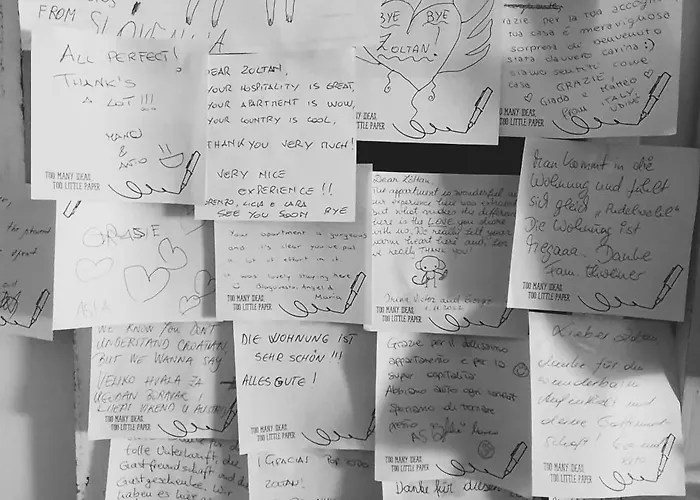 FROM
SLOVENIA
BYE BYE
ZOLTAN.
TOO MANY IDEAS,
TOO LITTLE PAPER
grazie per la tua accoglienza
tua casa è meravigliosa
sorpresa di benvenuto
stata davvero carina :)
siamo sentiti come
casa
GRAZIE!
Giada e Marco
From ITALY,
UDINE
TOO MANY IDEAS,
TOO LITTLE PAPER
ALL PERFECT!
THANK'S
A LOT !!!
MARCO
&
TOO MANY IDEAS,
TOO LITTLE PAPER
DEAR ZOLTAN,
YOUR HOSPITALITY IS GREAT,
YOUR APARTMENT IS WOW,
YOUR COUNTRY IS COOL,
THANK YOU VERY MUCH!
VERY NICE
EXPERIENCE !!
LORENZO, LICIA e LARA
SEE YOU SOON BYE
Dear Zoltan,
The apartment is wonderful and
our experience here was
but what makes the difference
here is the LOVE you share
with us. We really felt your
warm heart here and
we really THANK YOU!
Victor and
1.11.2022
TOO MANY IDEAS,
TOO LITTLE PAPER
Man kommt in die
Wohnung und fühlt
sich gleich „Pudelwohl"
Die Wohnung ist
megaaa. Danke
Fam.
TOO MANY IDEAS,
TOO LITTLE PAPER
the present
GRASIE
Your apartment is gorgeous
and it's clear you've put
a lot of effort in it.
It was lovely staying here
Angela &
Maria
TOO MANY IDEAS,
TOO LITTLE PAPER
TOO MANY IDEAS,
TOO LITTLE PAPER
WE KNOW YOU DON'T
UNDERSTAND CROATIAN
BUT WE WANNA SAY
VELIKO HVALA ZA
UGODAN BORAVAK!
LIJEPI VIKEND U AUSTRIJI
TOO MANY IDEAS,
TOO LITTLE PAPER
DIE WOHNUNG IST
SEHR SCHÖN !!!
ALLES GUTE!
TOO MANY IDEAS,
TOO LITTLE PAPER
Grazie per il bellissimo
appartamento e per la
super capitalità
Abbiamo avuto ogni comfort
Speriamo di tornare
presto
TOO MANY IDEAS,
TOO LITTLE PAPER
Lieber Zoltan,
danke für den
wunderbaren
Aufenthalt und
deine Gastfreund-
schaft!
TOO MANY IDEAS,
TOO LITTLE PAPER
tolle Unterkunft, die
Gastfreundschaft und die
Gastgeschenke. Wir
haben es hier
¡GRACIAS POR TODO
ZOLTAN!
Danke für diesen